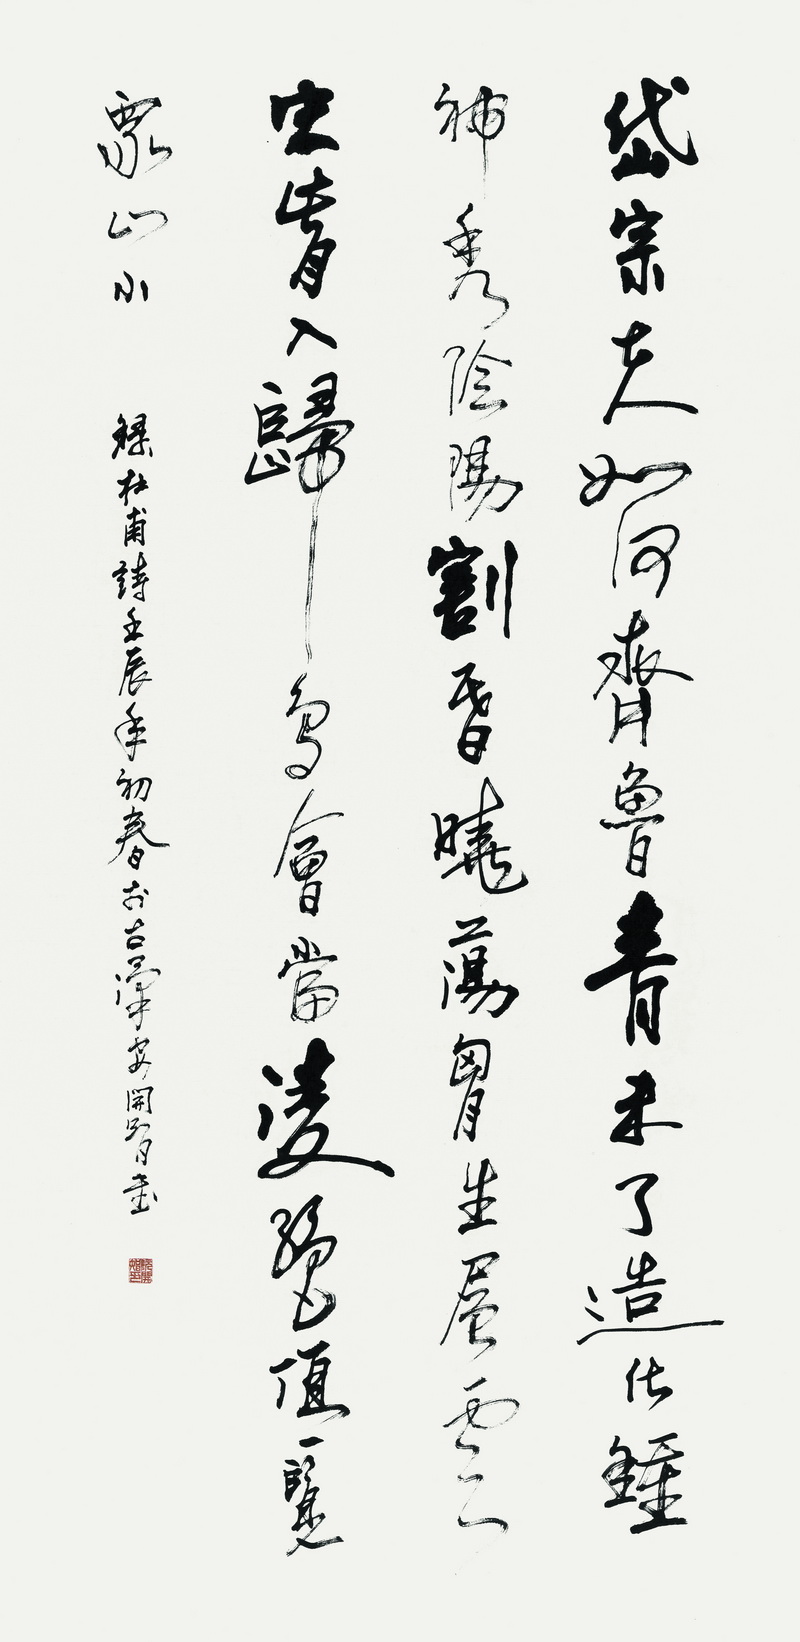 岱宗夫如何齊魯青未了造化鍾
神秀陰陽割昏曉蕩胷生層雲
決眥入歸鳥會當凌絕頂一覽
眾山小
錄杜甫詩壬辰年初春於古安開智書